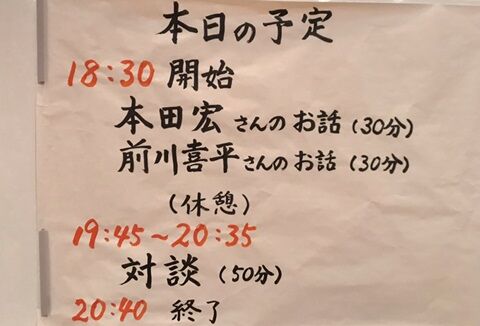 本日の予定
18:30 開始
本田宏さんのお話(30分)
前川喜平さんのお話(30分)
(休憩)
19:45~20:35
対談(50分)
20:40 終了